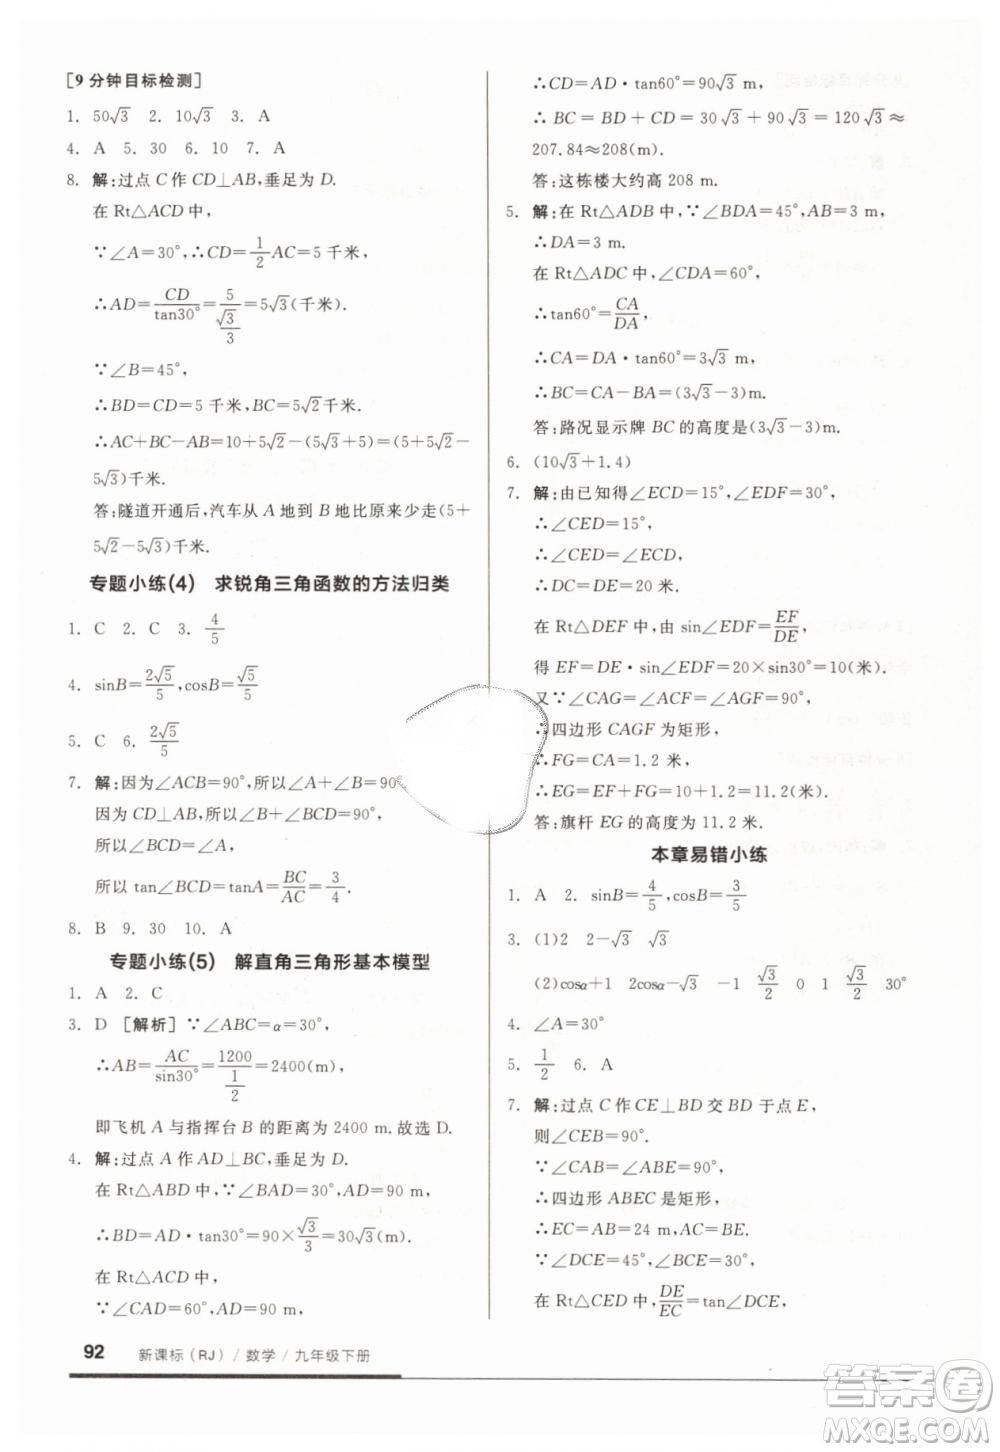 [9分钟目标检测]
1. 50√3  2. 10√3  3. A
4. A  5. 30  6. 10  7. A
8. 解:过点C作CD⊥AB,垂足为D.
在Rt△ACD中,
∵∠A=30°,∴CD=1/2AC=5千米,
∴AD=CD/tan30°=5/(√3/3)=5√3(千米).
∵∠B=45°,
∴BD=CD=5千米,BC=5√2千米,
∴AC+BC-AB=10+5√2-(5√3+5)=(5+5√2-
5√3)千米.
答:隧道开通后,汽车从A地到B地比原来少走(5+
5√2-5√3)千米.
专题小练(4) 求锐角三角函数的方法归类
1. C  2. C  3. 4/5
4. sinB=2√5/5,cosB=√5/5
5. C  6. 2√5/5
7. 解:因为∠ACB=90°,所以∠A+∠B=90°.
因为CD⊥AB,所以∠B+∠BCD=90°,
所以∠A=∠BCD,
所以tan∠BCD=tanA=BC/AC=3/4.
8. B  9. 30  10. A
专题小练(5) 解直角三角形基本模型
1. A  2. C
3. D [解析]∵∠ABC=α=30°,
∴AB=AC/sin30°=1200/(1/2)=2400(m),
即飞机A与指挥台B的距离为2400 m.故选D.
4. 解:过点A作AD⊥BC,垂足为D.
在Rt△ABD中,∵∠BAD=30°,AD=90 m,
∴BD=AD·tan30°=90×√3/3=30√3(m).
在Rt△ACD中,
∵∠CAD=60°,AD=90 m,
∴CD=AD·tan60°=90√3 m,
∴BC=BD+CD=30√3+90√3=120√3≈
207.84≈208(m).
答:这栋楼大约高208 m.
5. 解:在Rt△ADB中,∵∠BDA=45°,AB=3 m,
∴DA=3 m.
在Rt△ADC中,∠CDA=60°,
∴tan60°=CA/DA,
∴CA=DA·tan60°=3√3 m,
∴BC=CA-BA=(3√3-3)m.
答:路况显示牌BC的高度是(3√3-3)m.
6. (10√3+1.4)
7. 解:由已知得∠ECD=15°,∠EDF=30°,
∴∠CED=15°,
∴∠CED=∠ECD,
∴DC=DE=20米.
在Rt△DEF中,由sin∠EDF=EF/DE,
得EF=DE·sin∠EDF=20×sin30°=10(米).
又∵∠CAG=∠ACF=∠AGF=90°,
∴四边形CAGF为矩形,
∴FG=CA=1.2米,
∴EG=EF+FG=10+1.2=11.2(米).
答:旗杆EG的高度为11.2米.
本章易错小练
1. A  2. sinB=4/5,cosB=3/5
3. (1)2  2-√3  √3
(2)cosα+1  2cosα-√3  -1  √3/2  0  1  √3/2  30°
4. ∠A=30°
5. 1/2  6. A
7. 解:过点C作CE⊥BD交BD于点E,
则∠CEB=90°.
∵∠CAB=∠ABE=90°,
∴四边形ABEC是矩形,
∴EC=AB=24 m,AC=BE.
∵∠DCE=45°,∠ECB=30°,
在Rt△CED中,DE/EC=tan∠DCE,
92 新课标(RJ)/数学/九年级下册
答案卷
MXQE.COM